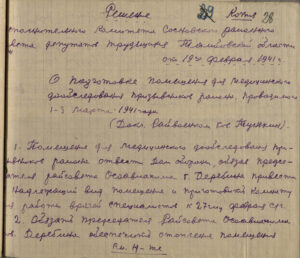 Решение Копия 28
сполнительного Комитета Сосновского районного
вета депутатов трудящихся Тамбовской области
от 19го февраля 1941г
О подготовке помещения для медицинского
дообследования призывников района. Проводимого
1-3 марта 1941 года
(Докл. Райвоенком т.
1. Помещение для медицинского дообследования при-
вников района отвести Дом обороны, обязав предсе-
ателя райсовета Осоавиахима т. Деребина привести
надлежащий вид помещение и приготовить комнату
я работы врачей специалистов к 27му февраля с/г.
2. Обязать председателя Райсовета Осоавиахима
т. Деребина обеспечить отопление помещения